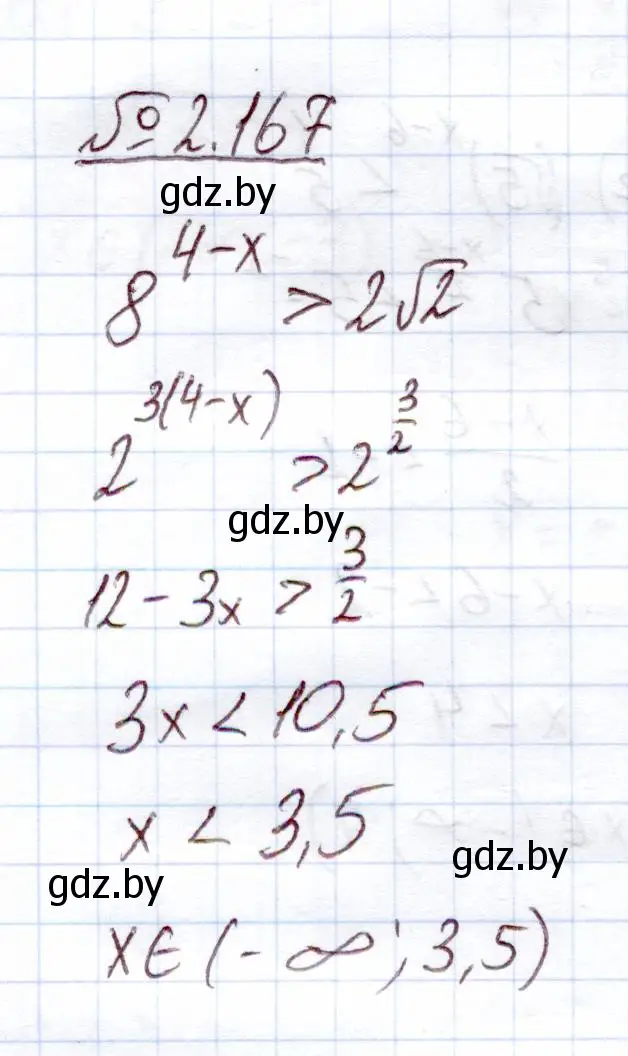 № 2.167
gdz.by
8^{4-x} > 2√2
2^{3(4-x)} > 2^{3/2}
gdz.by
12 - 3x > 3/2
3x < 10,5
x < 3,5
gdz.by
gdz.by
x ∈ (-∞; 3,5)